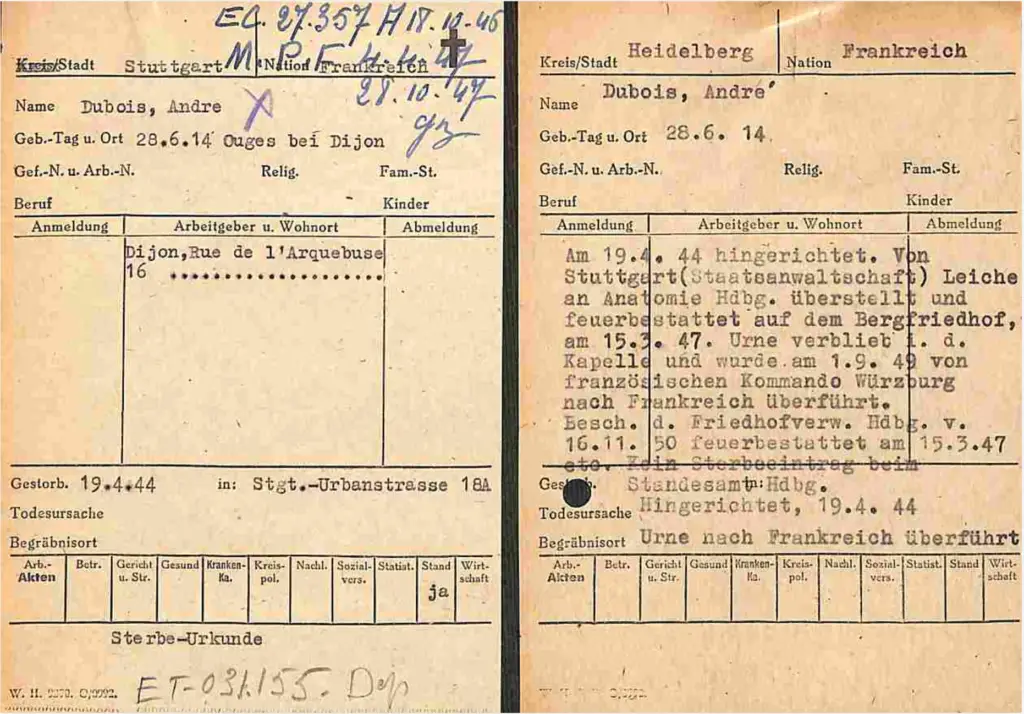 EC. 27.357 A 18.10.46
M.P.F. 4.4.47
Kreis/Stadt Stuttgart Nation Frankreich
28.10.47
Name Dubois, Andre X
Geb.-Tag u. Ort 28.6.14 Ouges bei Dijon
Gef.-N. u. Arb.-N. Relig. Fam.-St.
Beruf Kinder
Anmeldung Arbeitgeber u. Wohnort Abmeldung
Dijon,Rue de l'Arquebuse
16 ....................
Gestorb. 19.4.44 in: Stgt.-Urbanstrasse 18A
Todesursache
Begräbnisort
Arb.- Betr. Gericht Gesund Kranken- Kreis- Nachl. Sozial- Statist. Stand Wirt-
Akten u. Str. Ka. pol. vers. schaft
ja
Sterbe-Urkunde
ET-031.155. Dep
W. H.
Kreis/Stadt Heidelberg Nation Frankreich
Name Dubois, André
Geb.-Tag u. Ort 28.6. 14.
Gef.-N. u. Arb.-N. Relig. Fam.-St.
Beruf Kinder
Anmeldung Arbeitgeber u. Wohnort Abmeldung
Am 19.4. 44 hingerichtet. Von
Stuttgart(Staatsanwaltschaft) Leiche
an Anatomie Hdbg. überstellt und
feuerbestattet auf dem Bergfriedhof,
am 15.3. 47. Urne verblieb i. d.
Kapelle und wurde am 1.9. 49 von
französischen Kommando Würzburg
nach Frankreich überführt.
Besch. d. Friedhofverw. Hdbg. v.
16.11. 50 feuerbestattet am 15.3.47
etc. Kein Sterbeeintrag beim
Gestorb. Standesamt in: Hdbg.
Todesursache Hingerichtet, 19.4. 44
Begräbnisort Urne nach Frankreich überführt
Arb.- Betr. Gericht Gesund Kranken- Kreis- Nachl. Sozial- Statist. Stand Wirt-
Akten u. Str. Ka. pol. vers. schaft